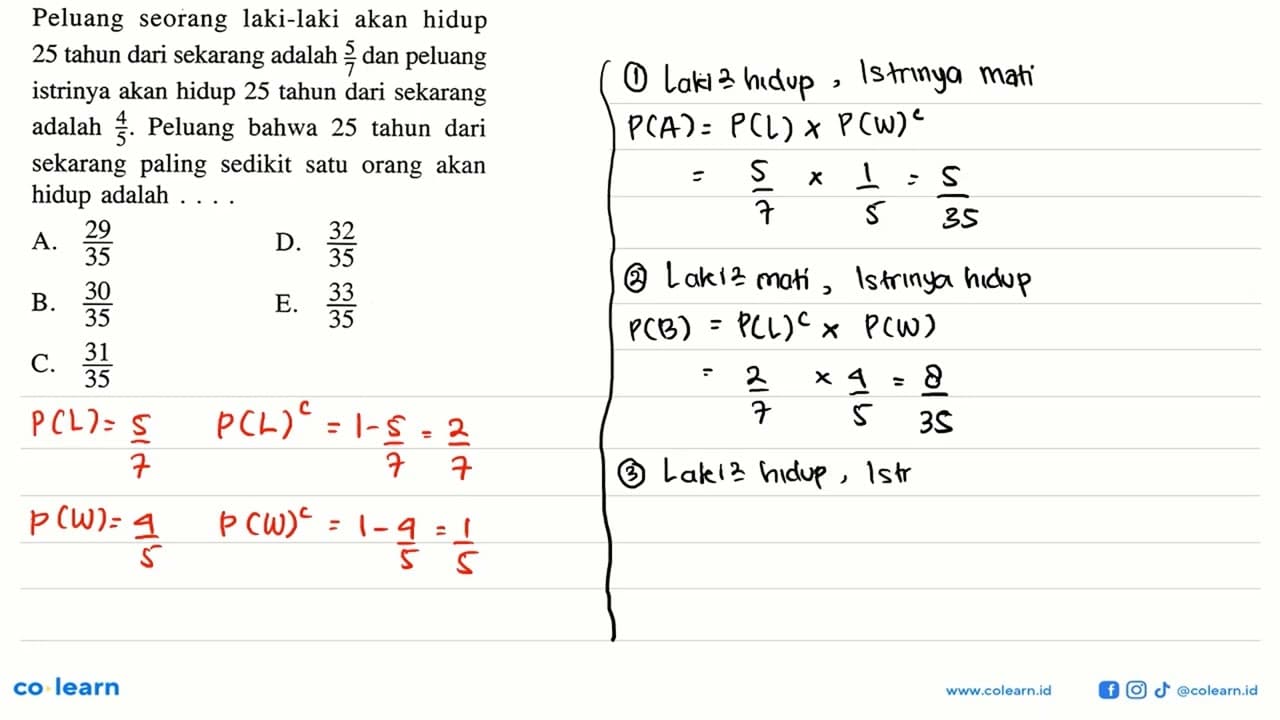 Peluang seorang laki-laki akan hidup
25 tahun dari sekarang adalah 5/7 dan peluang
istrinya akan hidup 25 tahun dari sekarang
adalah 4/5. Peluang bahwa 25 tahun dari
sekarang paling sedikit satu orang akan
hidup adalah . . . .
A. 29/35
B. 30/35
C. 31/35
D. 32/35
E. 33/35
P(L) = 5/7 P(L)^c = 1 - 5/7 = 2/7
P(W) = 4/5 P(W)^c = 1 - 4/5 = 1/5
① Laki2 hidup, Istrinya mati
P(A) = P(L) x P(W)^c
= 5/7 x 1/5 = 5/35
② Laki2 mati, Istrinya hidup
P(B) = P(L)^c x P(W)
= 2/7 x 4/5 = 8/35
③ Laki2 hidup, Istr
co learn
www.colearn.id
@colearn.id